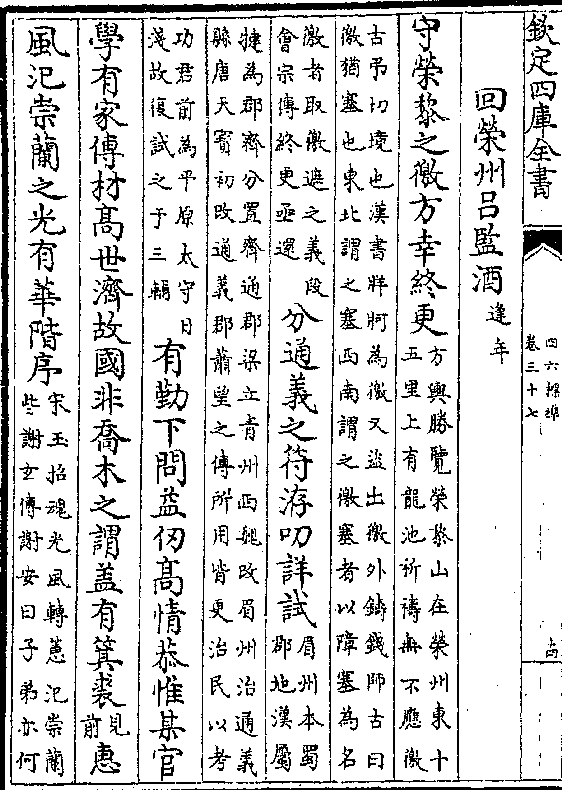 欽定四庫全書
四六標準
卷三十七
回榮州吕監酒逢年
守榮黎之徼方幸終更
方輿勝覽榮黎山在榮州東十
五里上有龍池祈禱無不應徼
古弔切境也漢書牂牁為徼又盜出徼外鑄錢師古曰
徼猶塞也東北謂之塞西南謂之徼塞者以障塞為名
徼者取徼遮之義段
會宗傳終更亟還
分通義之符洊叨詳試
眉州本蜀
郡地漢屬
犍為郡齊分置齊通郡梁立青州西魏改眉州治通義
縣唐天寳初改通義郡蕭望之傳所用皆更治民以考
功君前為平原太守日
淺故復試之于三輔
有勤下問益仞髙情恭惟某官
學有家傳材髙世濟故國非喬木之謂盖有箕裘
見
前
惠
風汜崇蘭之光有華階序
宋玉招魂光風轉蕙汜崇蘭
些謝玄傳謝安曰子弟亦何